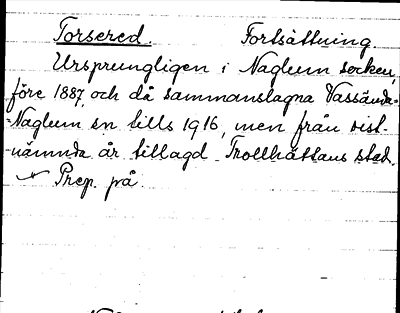 Torsered. Fortsättning.
Ursprungligen i Naglum socken,
före 1887, och då sammanslagna Vassända-
-Naglum sn tills 1916, men från sist-
-nämnda år tillagd Trollhättans stad.
Prep. på.